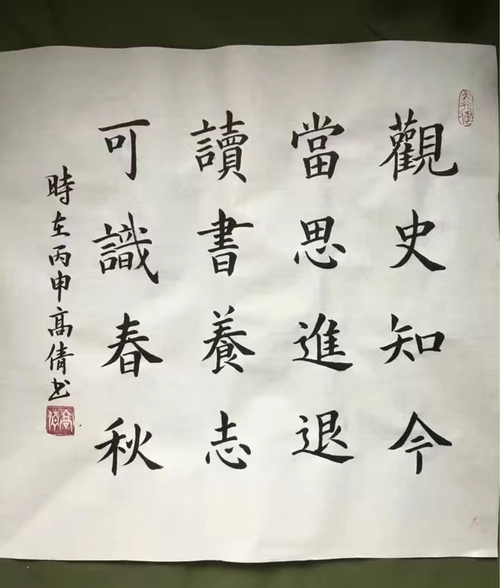 觀史知今
當思進退
讀書養志
可識春秋
時在丙申高倩书